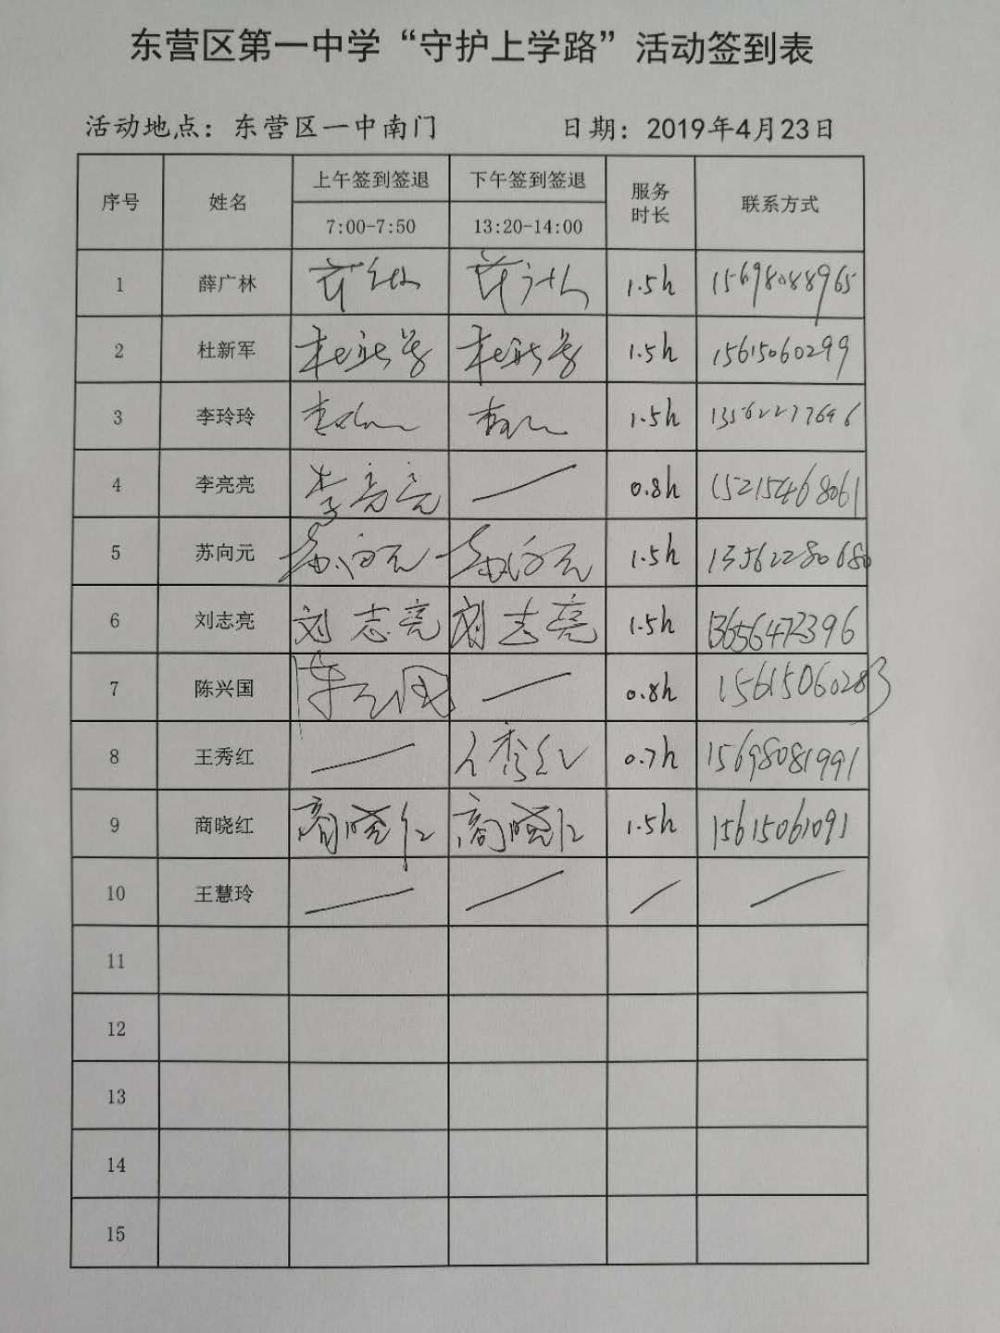 东营区第一中学“守护上学路”活动签到表
活动地点：东营区一中南门 日期：2019年4月23日
序号 姓名 上午签到签退 下午签到签退 服务时长 联系方式
7:00-7:50 13:20-14:00
1 薛广林 1.5h 15698088965
2 杜新军 杜新军 杜新军 1.5h 15615060299
3 李玲玲 1.5h 13562277696
4 李亮亮 李亮亮 — 0.8h 15215468061
5 苏向元 苏向元 苏向元 1.5h 13562280680
6 刘志亮 刘志亮 刘志亮 1.5h 13656472396
7 陈兴国 陈兴国 — 0.8h 15615060283
8 王秀红 — 王秀红 0.7h 15698081991
9 商晓红 商晓红 商晓红 1.5h 15615061091
10 王慧玲 — — — —
11
12
13
14
15